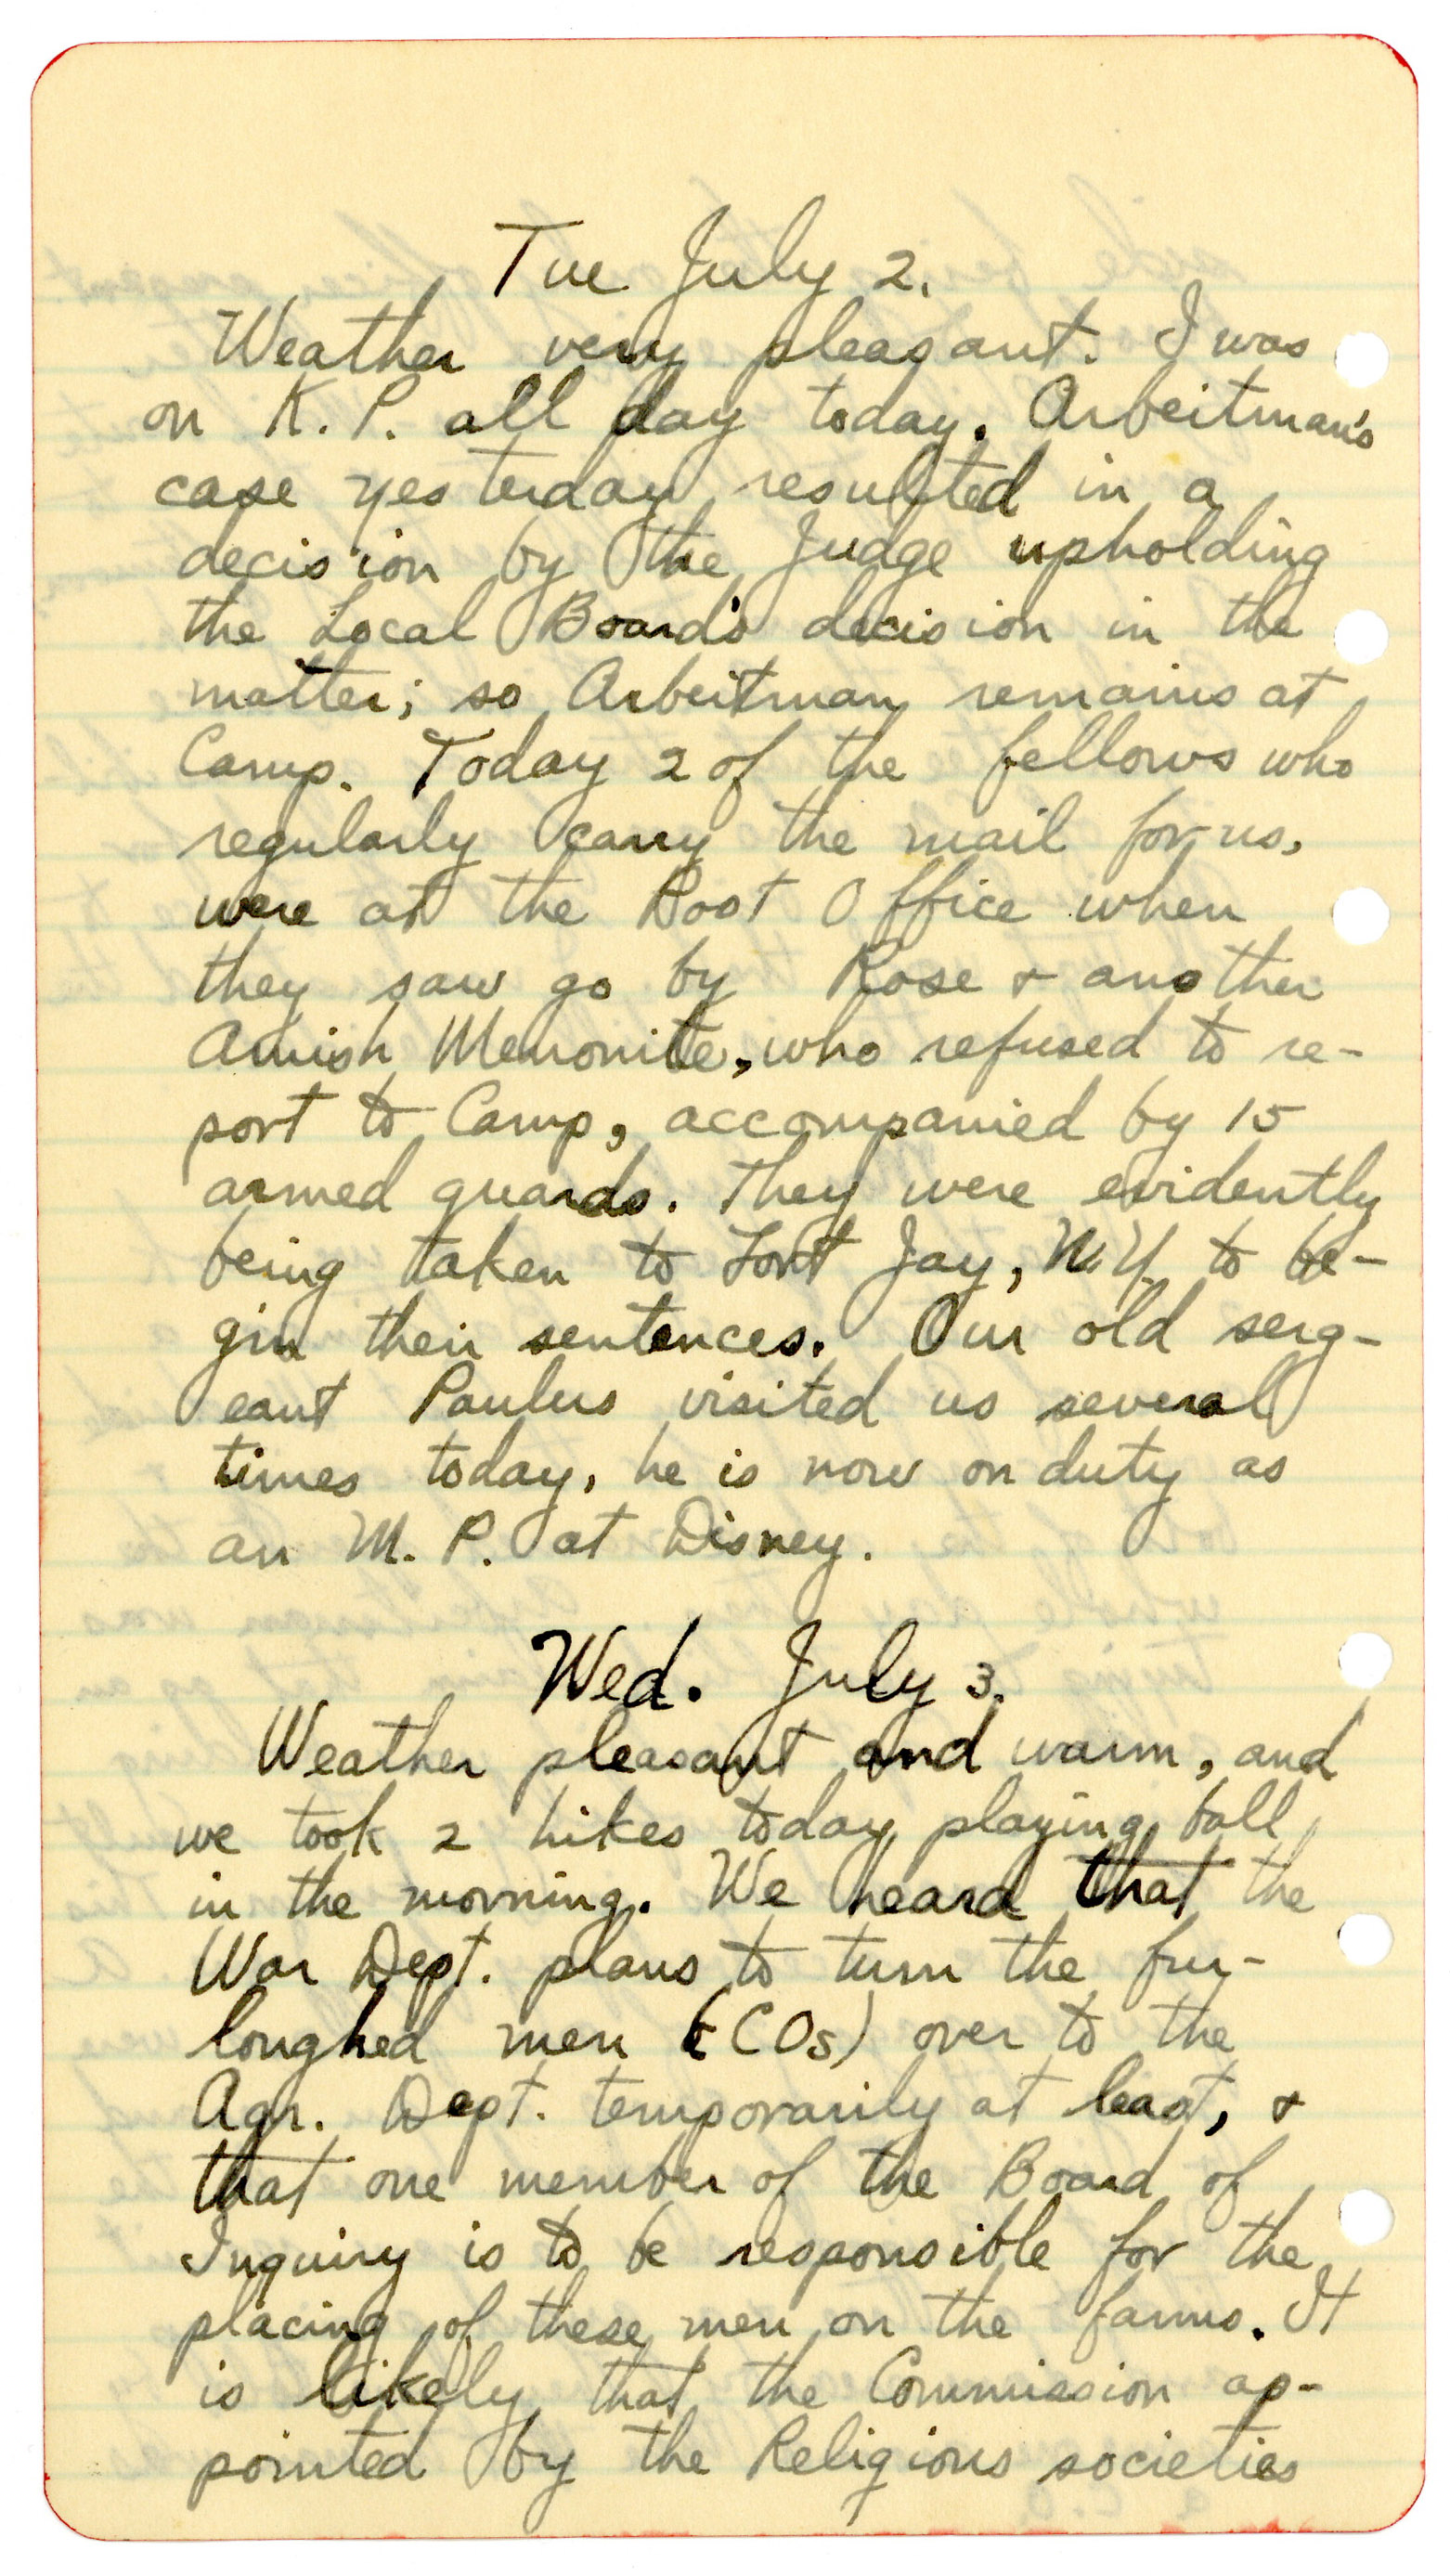 Tue July 2.
Weather very pleasant. I was
on K. P. all day today. Arbeitman's
case yesterday resulted in a
decision by the Judge upholding
the Local Board's decision in the
matter; so Arbeitman remains at
Camp. Today 2 of the fellows who
regularly carry the mail for us,
were at the Post Office when
they saw go by Rose & another
Amish Menonite, who refused to re-
port to Camp, accompanied by 15
armed guards. They were evidently
being taken to Fort Jay, N.Y. to be-
gin their sentences. Our old serg-
eant Paulus visited us several
times today, he is now on duty as
an M. P. at Disney.
Wed. July 3.
Weather pleasant and warm, and
we took 2 hikes today playing ball
in the morning. We heard that the
War Dept. plans to turn the fur-
loughed men (COs) over to the
Agr. Dept. temporarily at least, &
that one member of the Board of
Inquiry is to be responsible for the
placing of these men on the farms. It
is likely that the Commission ap-
pointed by the Religious societies